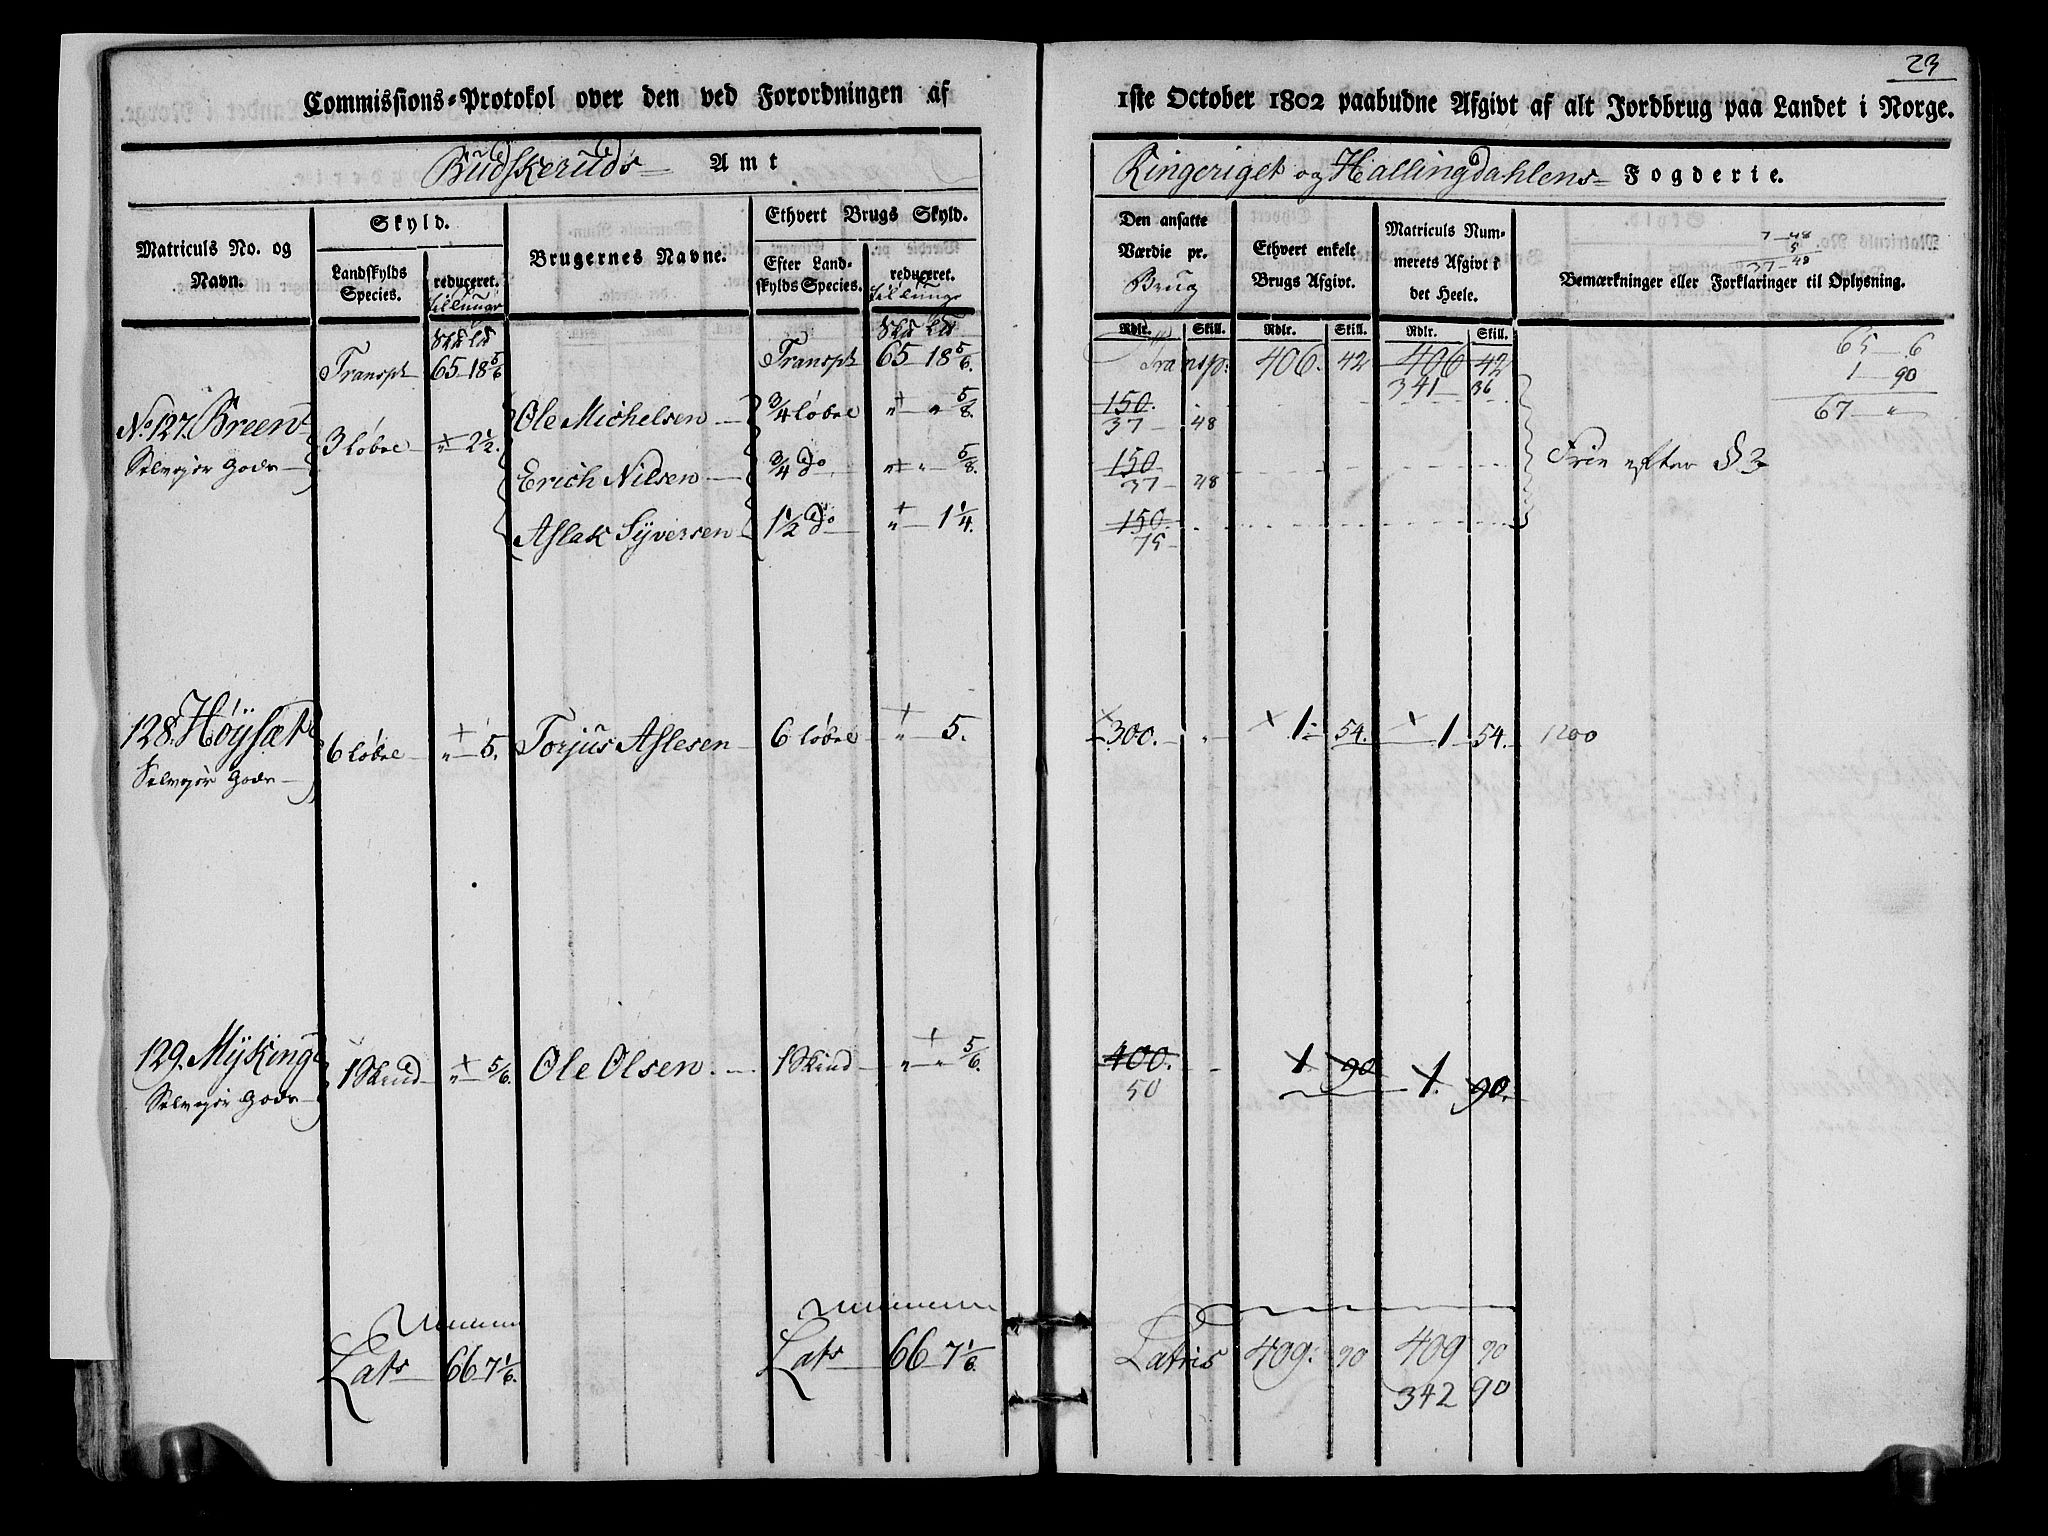 23
Commissions-Protokol over den ved Forordningen af 1ste October 1802 paabudne Afgivt af alt Jordbrug paa Landet i Norge.
Budskeruds Amt
Ringeriget og Hallingdahlens Fogderie.
Matriculs No. og Navn.
Skyld.
Landskylds Species.
reduceret.
Brugernes Navne.
Ethvert Brugs Skyld.
Efter Landskylds Species.
reduceret.
Den ansatte Værdie pr. Brug
Ethvert enkelt Brugs Afgivt.
Matriculs Nummerets Afgivt i det Heele.
7 - 48
5
37 - 48
Bemærkninger eller Forklaringer til Oplysning.
Rdlr. Skill. Rdlr. Skill. Rdlr. Skill.
Transpt 65 18 5/6 Transpt 65 18 5/6. Transp: 406. 42 406 42
341 36
65 6
1 90
67 "
No 127. Breen 3 Løbe " 2 1/2. Ole Michelsen 3/4 Løbe " " 5/8. 150.
37 48
Selvejer Gods Erich Nilsen 3/4 Do " " 5/8. 150
37 48
Frie efter § 3
Aslak Syversen 1 1/2 Do " 1 1/4. 150.
75
128. Höysæt 6 Løbe " 5. Torjus Aslesen 6 Løbe " 5. 300. " 1 54. 1 54. 1200
Selvejer Gods
129. Myking 1 Skind " 5/6. Ole Olsen. 1 Skind " " 5/6. 400. 1. 90 1. 90.
50
Selvejer Gods
Lats 66 7 1/6. Lats 66 7 1/6. Latris 409. 90 409 90
342 90